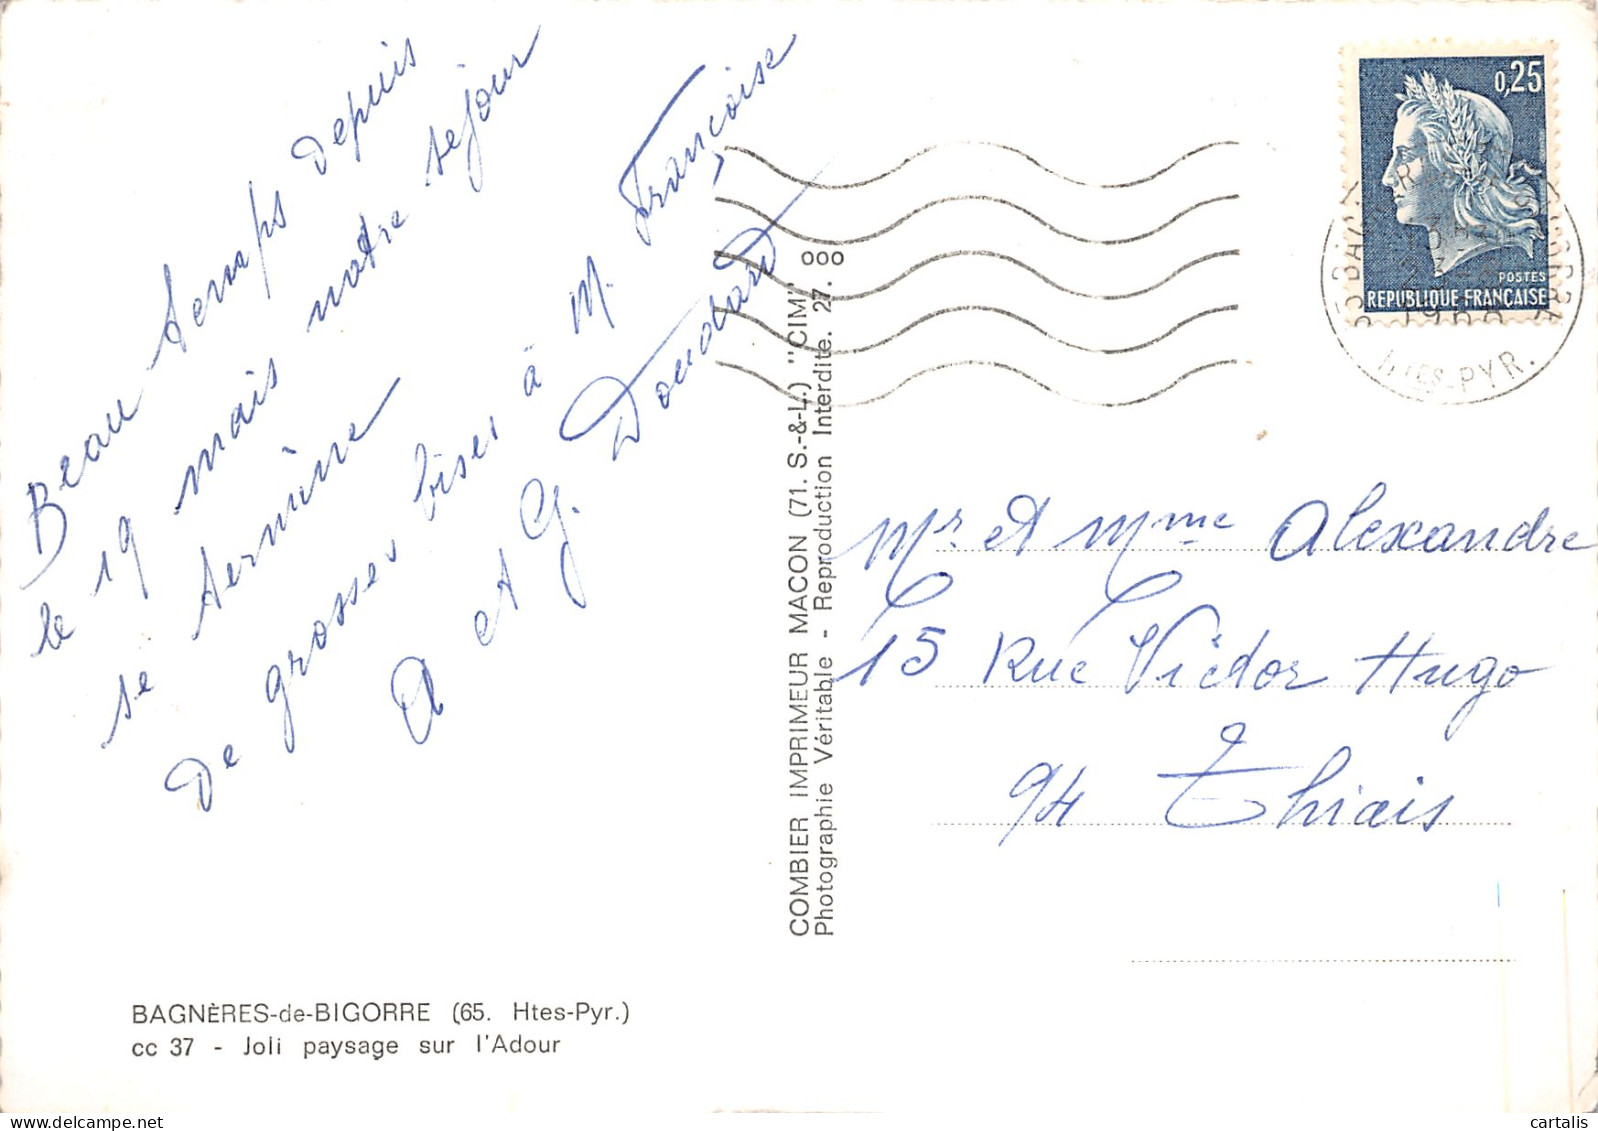 Beau temps depuis
le 19 mais notre sejour
se termine
De grosses bises à M. Françoise
A et G. Doudard
Mr et Mme Alexandre
15 Rue Victor Hugo
94 Thiais
0,25
POSTES
REPUBLIQUE FRANÇAISE
HTES-PYR.
000
COMBIER IMPRIMEUR MACON (71. S.-&-L.) "CIM"
Photographie Véritable - Reproduction Interdite. 27.
BAGNÈRES-de-BIGORRE (65. Htes-Pyr.)
cc 37 - Joli paysage sur l'Adour
cartalis